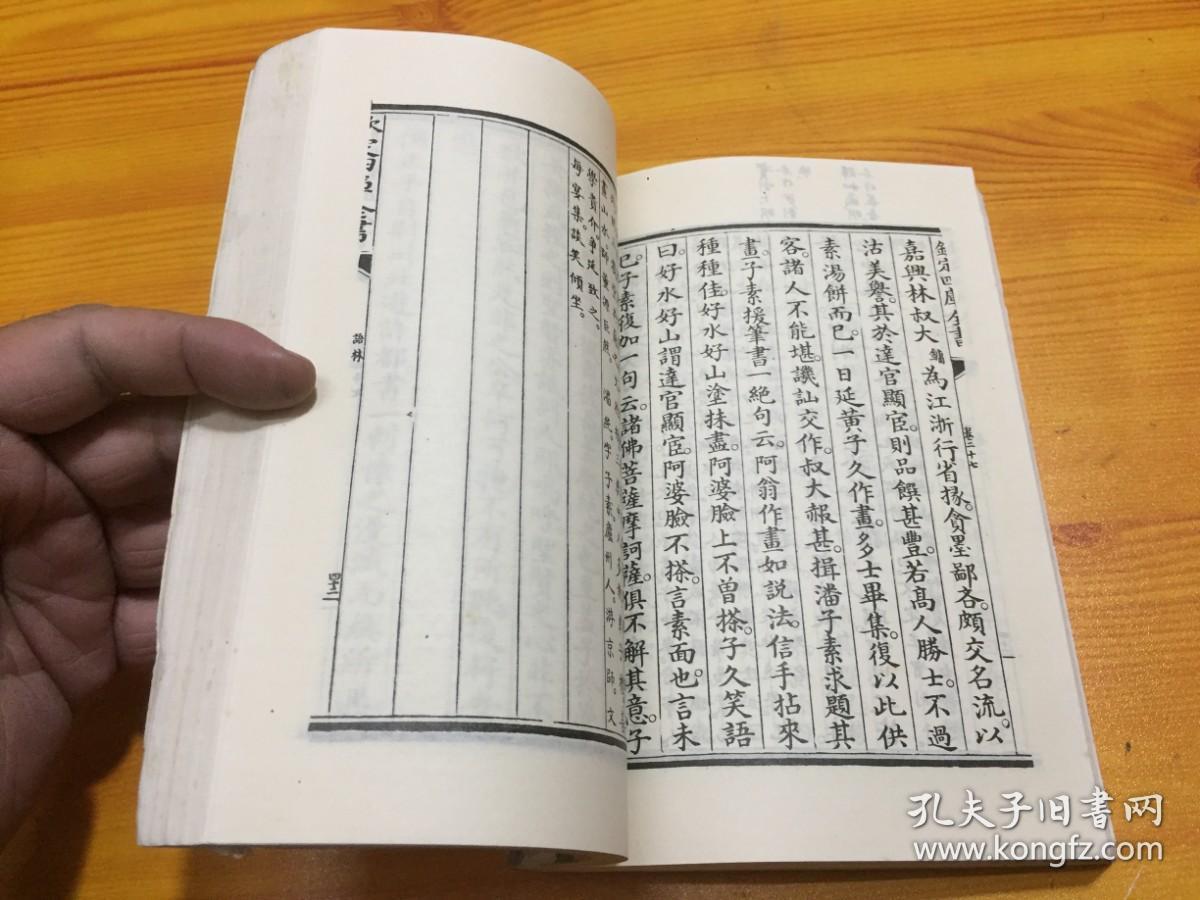 欽定四庫全書
卷二十七
嘉興林叔大鏞為江浙行省掾。貪墨鄙吝。頗交名流。以
沽美譽。其於達官顯宦。則品饌甚豐。若髙人勝士。不過
素湯餅而已。一日延黄子久作畫。多士畢集。復以此供
客。諸人不能堪。譏訕交作。叔大赧甚。揖潘子素求題其
畫。子素援筆書一絶句云。阿翁作畫如説法。信手拈來
種種佳。好水好山塗抹盡。阿婆臉上不曽搽。子久笑語
曰。好水好山謂達官顯宦。阿婆臉不搽。言素面也。言未
已。子素復加一句云。諸佛菩薩摩訶薩。俱不解其意。子
字子素。廬州人。游京師。文
學貴介。爭延致之。
每宴集。談笑傾坐。
語林
孔夫子旧書网
www.kongfz.com